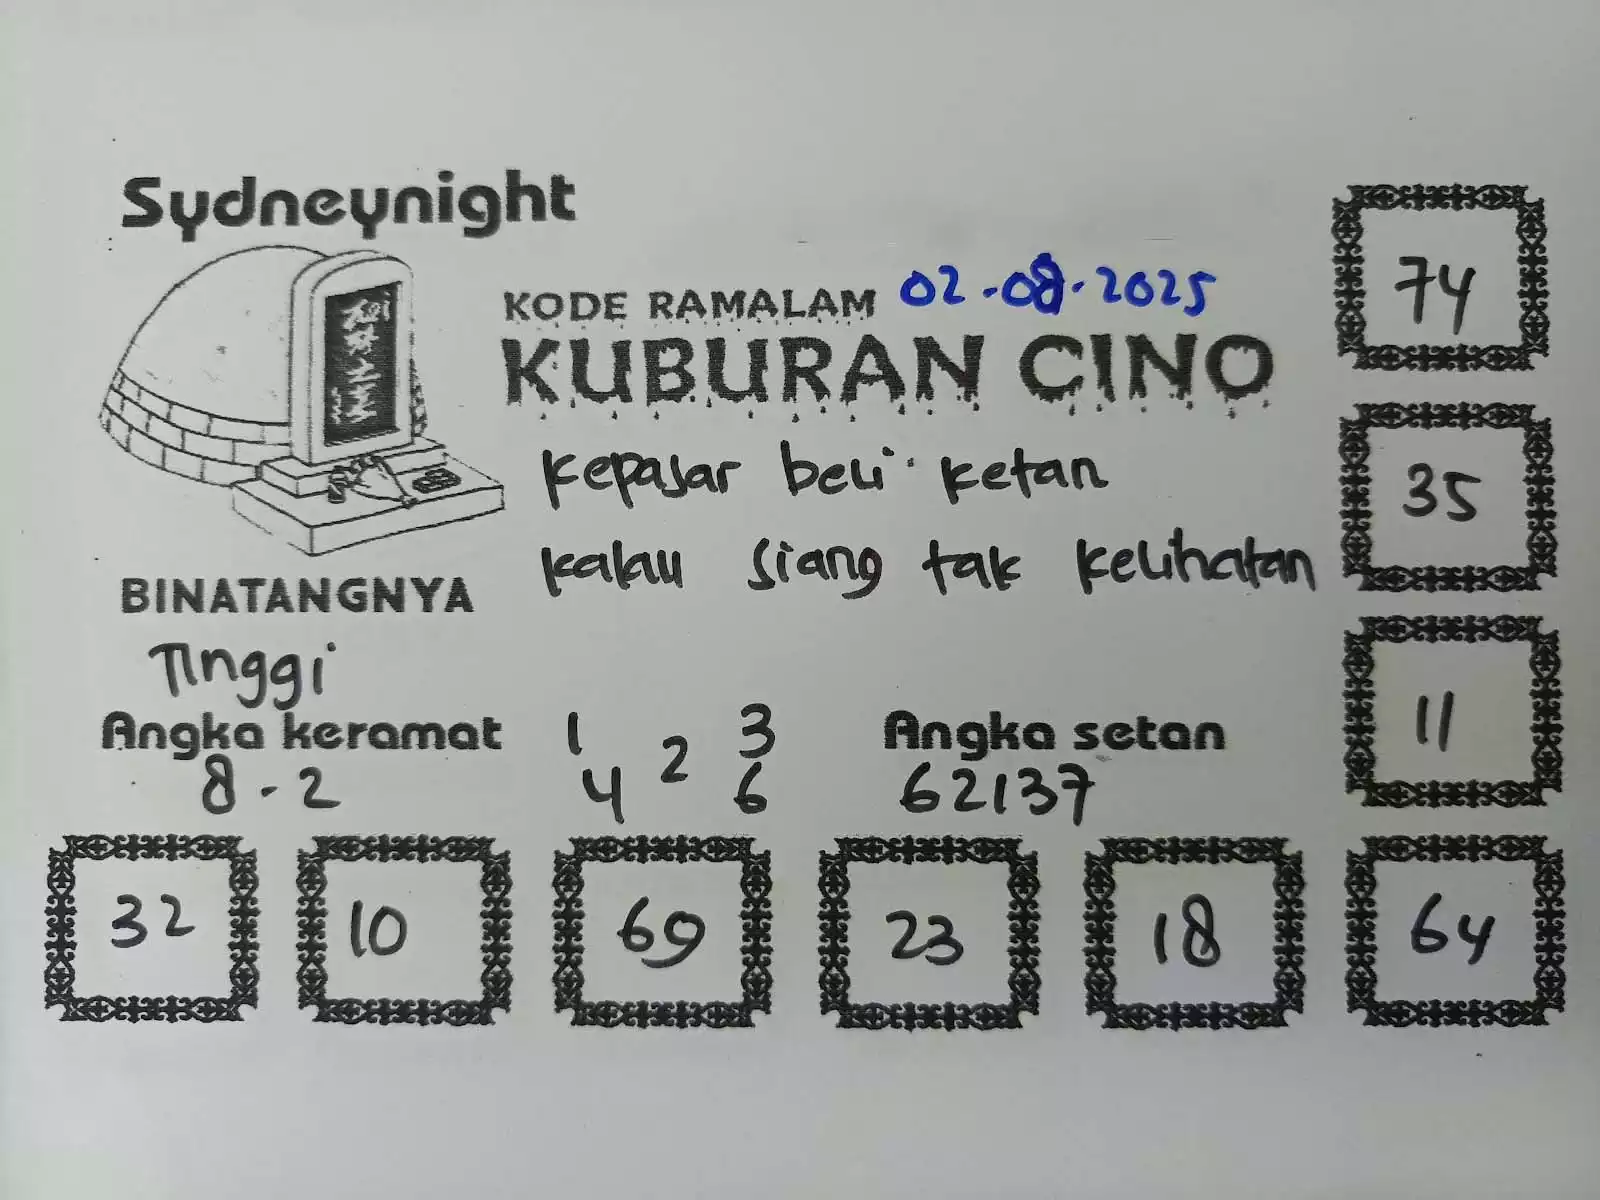 Sydneynight
KODE RAMALAM 02-08-2025
KUBURAN CINO
Kepasar beli ketan
kalau siang tak kelihatan
BINATANGNYA
Tinggi
Angka keramat
8-2
1 3
2
4 6
Angka setan
62137
74
35
11
32 10 69 23 18 64